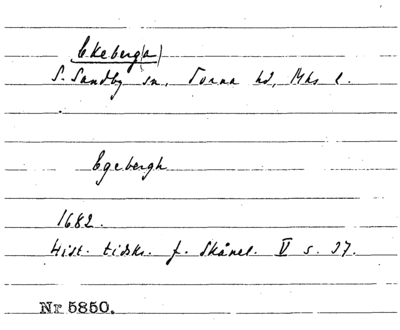 Ekeberg(a)
S. Sandby sn, Torna hd, Mhs l.
Egebergh
1682.
Hist. tidskr. f. Skånel. V s. 37.
Nr 5850.